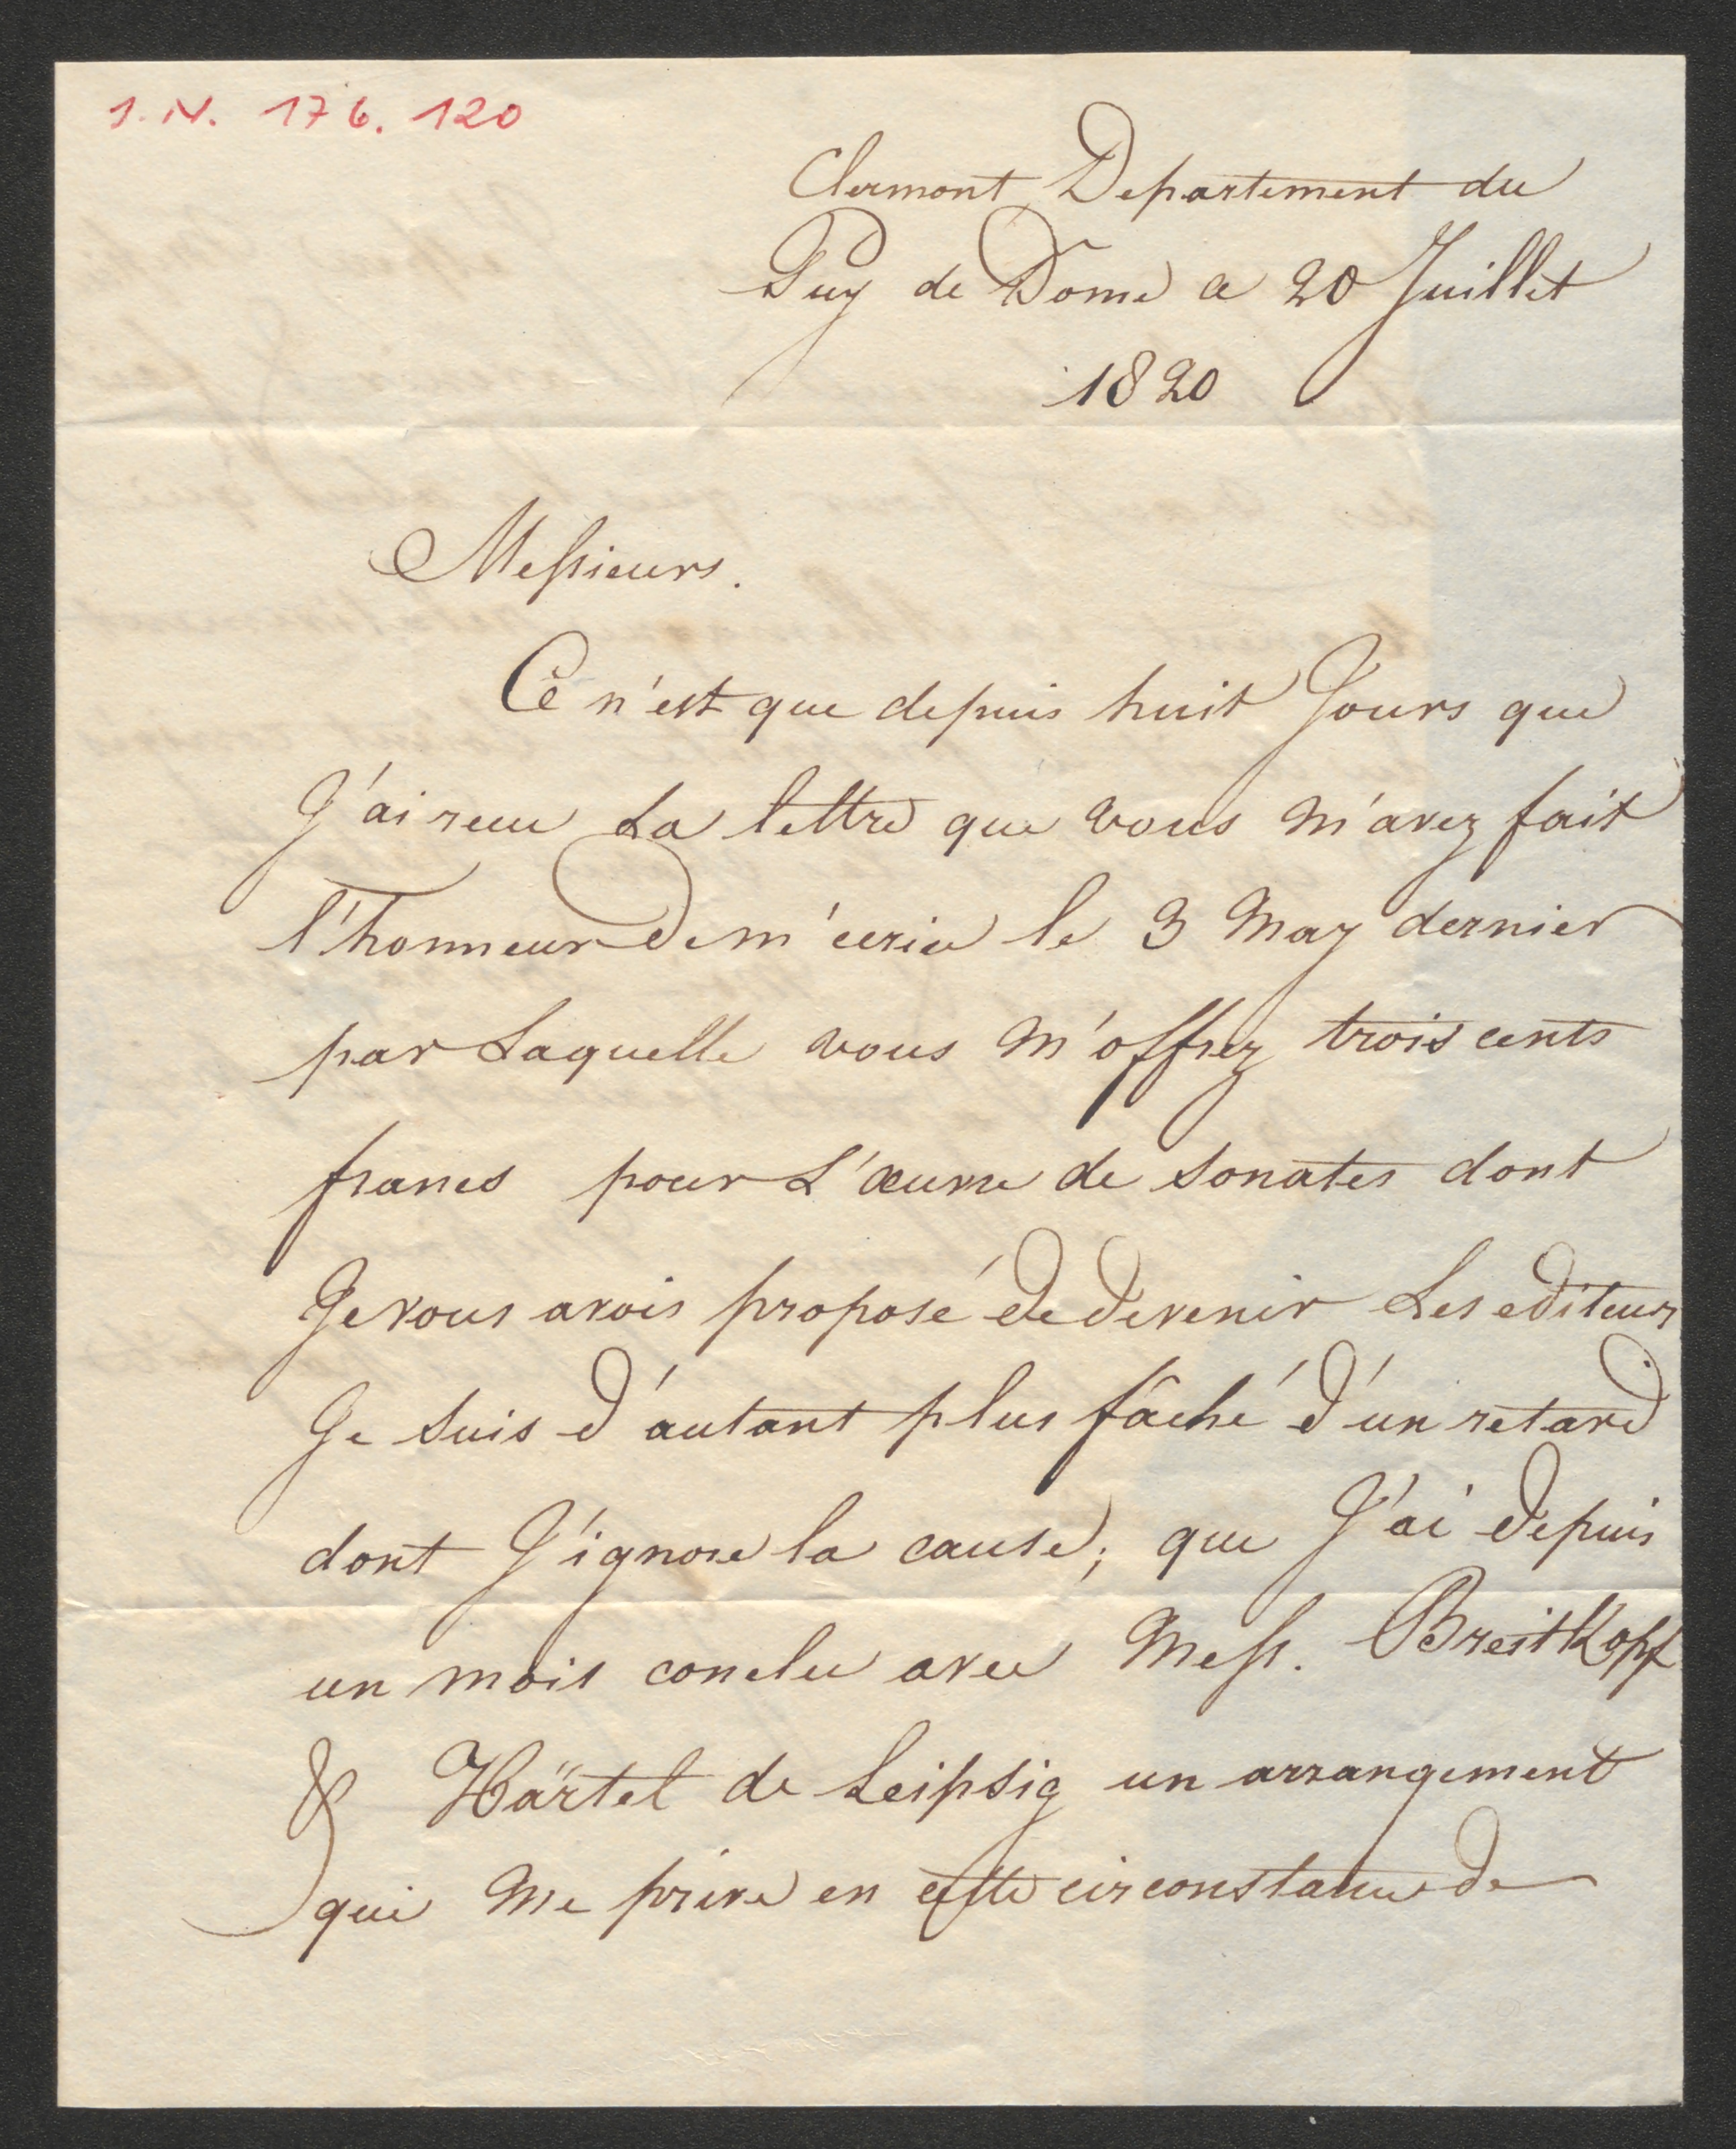 J.N. 176.120
Clermont Departement du
Puy de Dome a 20 Juillet
1820
Messieurs.
Ce n'est que depuis huit Jours que
J'ai recu La lettre que vous m'avez fait
l'honneur de m'ecrire le 3 May dernier
par Laquelle vous m'offrez trois cents
francs pour L'œuvre de sonates dont
Je vous avois proposé de devenir Les editeurs
Je suis d'autant plus fâché d'un retard
dont J'ignore la cause; que J'ai depuis
un mois conclu avec Mess. Breitkopf
& Härtel de Leipsig un arrangement
qui me prive en cette circonstance de